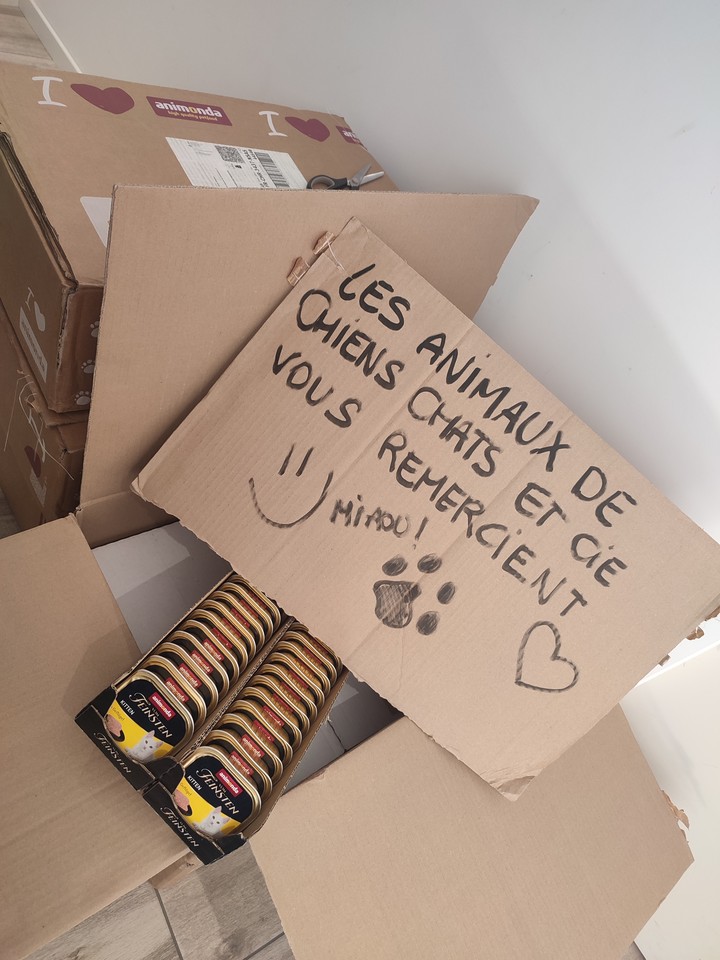 I ❤ animonda
high quality petfood
I ❤
LES ANIMAUX DE
CHIENS CHATS ET CIE
VOUS REMERCIENT
MIAOU!
animonda
VOM FEINSTEN
KITTEN
FEINSTEN
animonda
VOM FEINSTEN
KITTEN
FEINSTEN